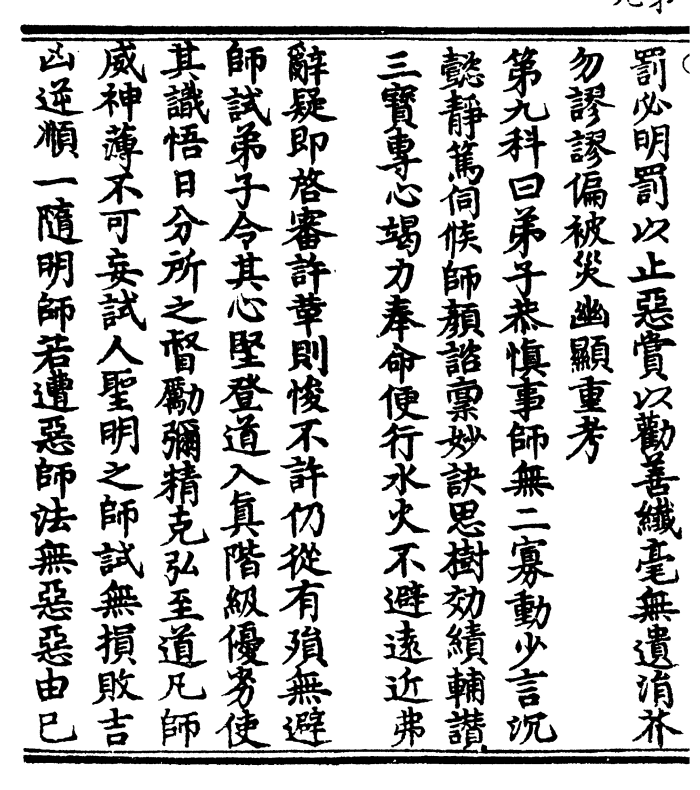 罰必明罰以止惡賞以勸善纖毫無遺涓芥
勿謬謬偏被災幽顯重考
第九科曰弟子恭慎事師無二寡動少言沉
懿靜篤伺候師顏諮稟妙訣思樹効績輔讚
三寶專心竭力奉命使行水火不避遠近弗
辭疑即啓審許葶則悛不許仍從有殞無避
師試弟子令其心堅登道入真階級優劣使
其識悟日分所之督勵彌精克弘至道凡師
威神薄不可妄試人聖明之師試無損敗吉
凶逆順一隨明師若遭惡師法無惡惡由已